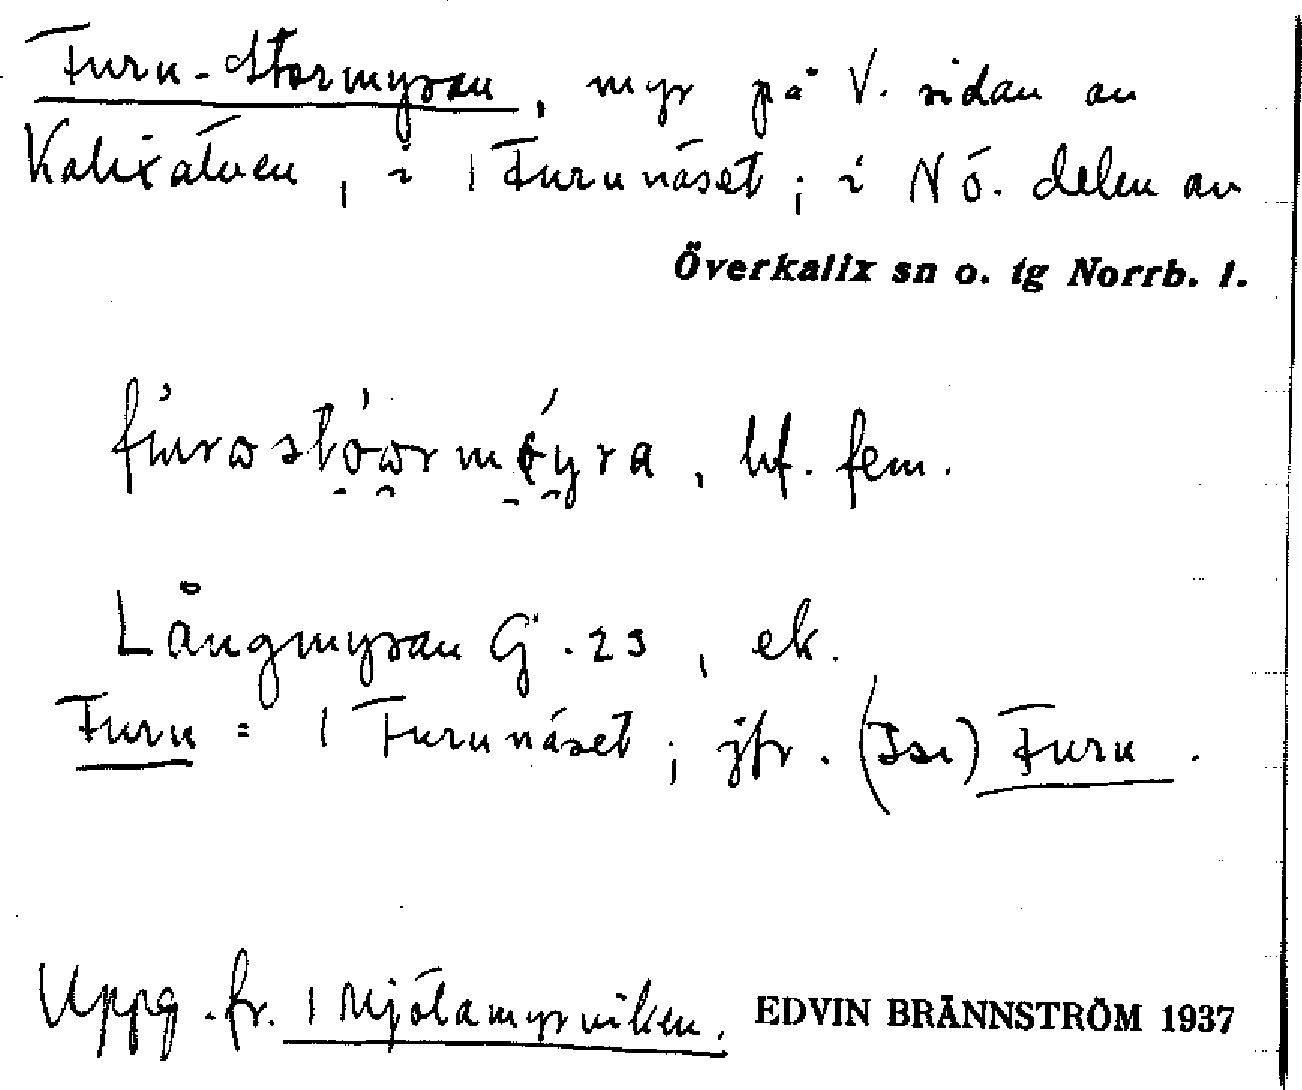 Furu-Stormyran, myr på V. sidan av
Kalixälven, i 1 Furunäset; i NÖ. delen av
Överkalix sn o. tg Norrb. l.
Långmyran G. 23, ek.
Furu = 1 Furunäset; jfr. (Isi) Furu.
Uppg. fr. 1 Mjölamyrviken. EDVIN BRÄNNSTRÖM 1937